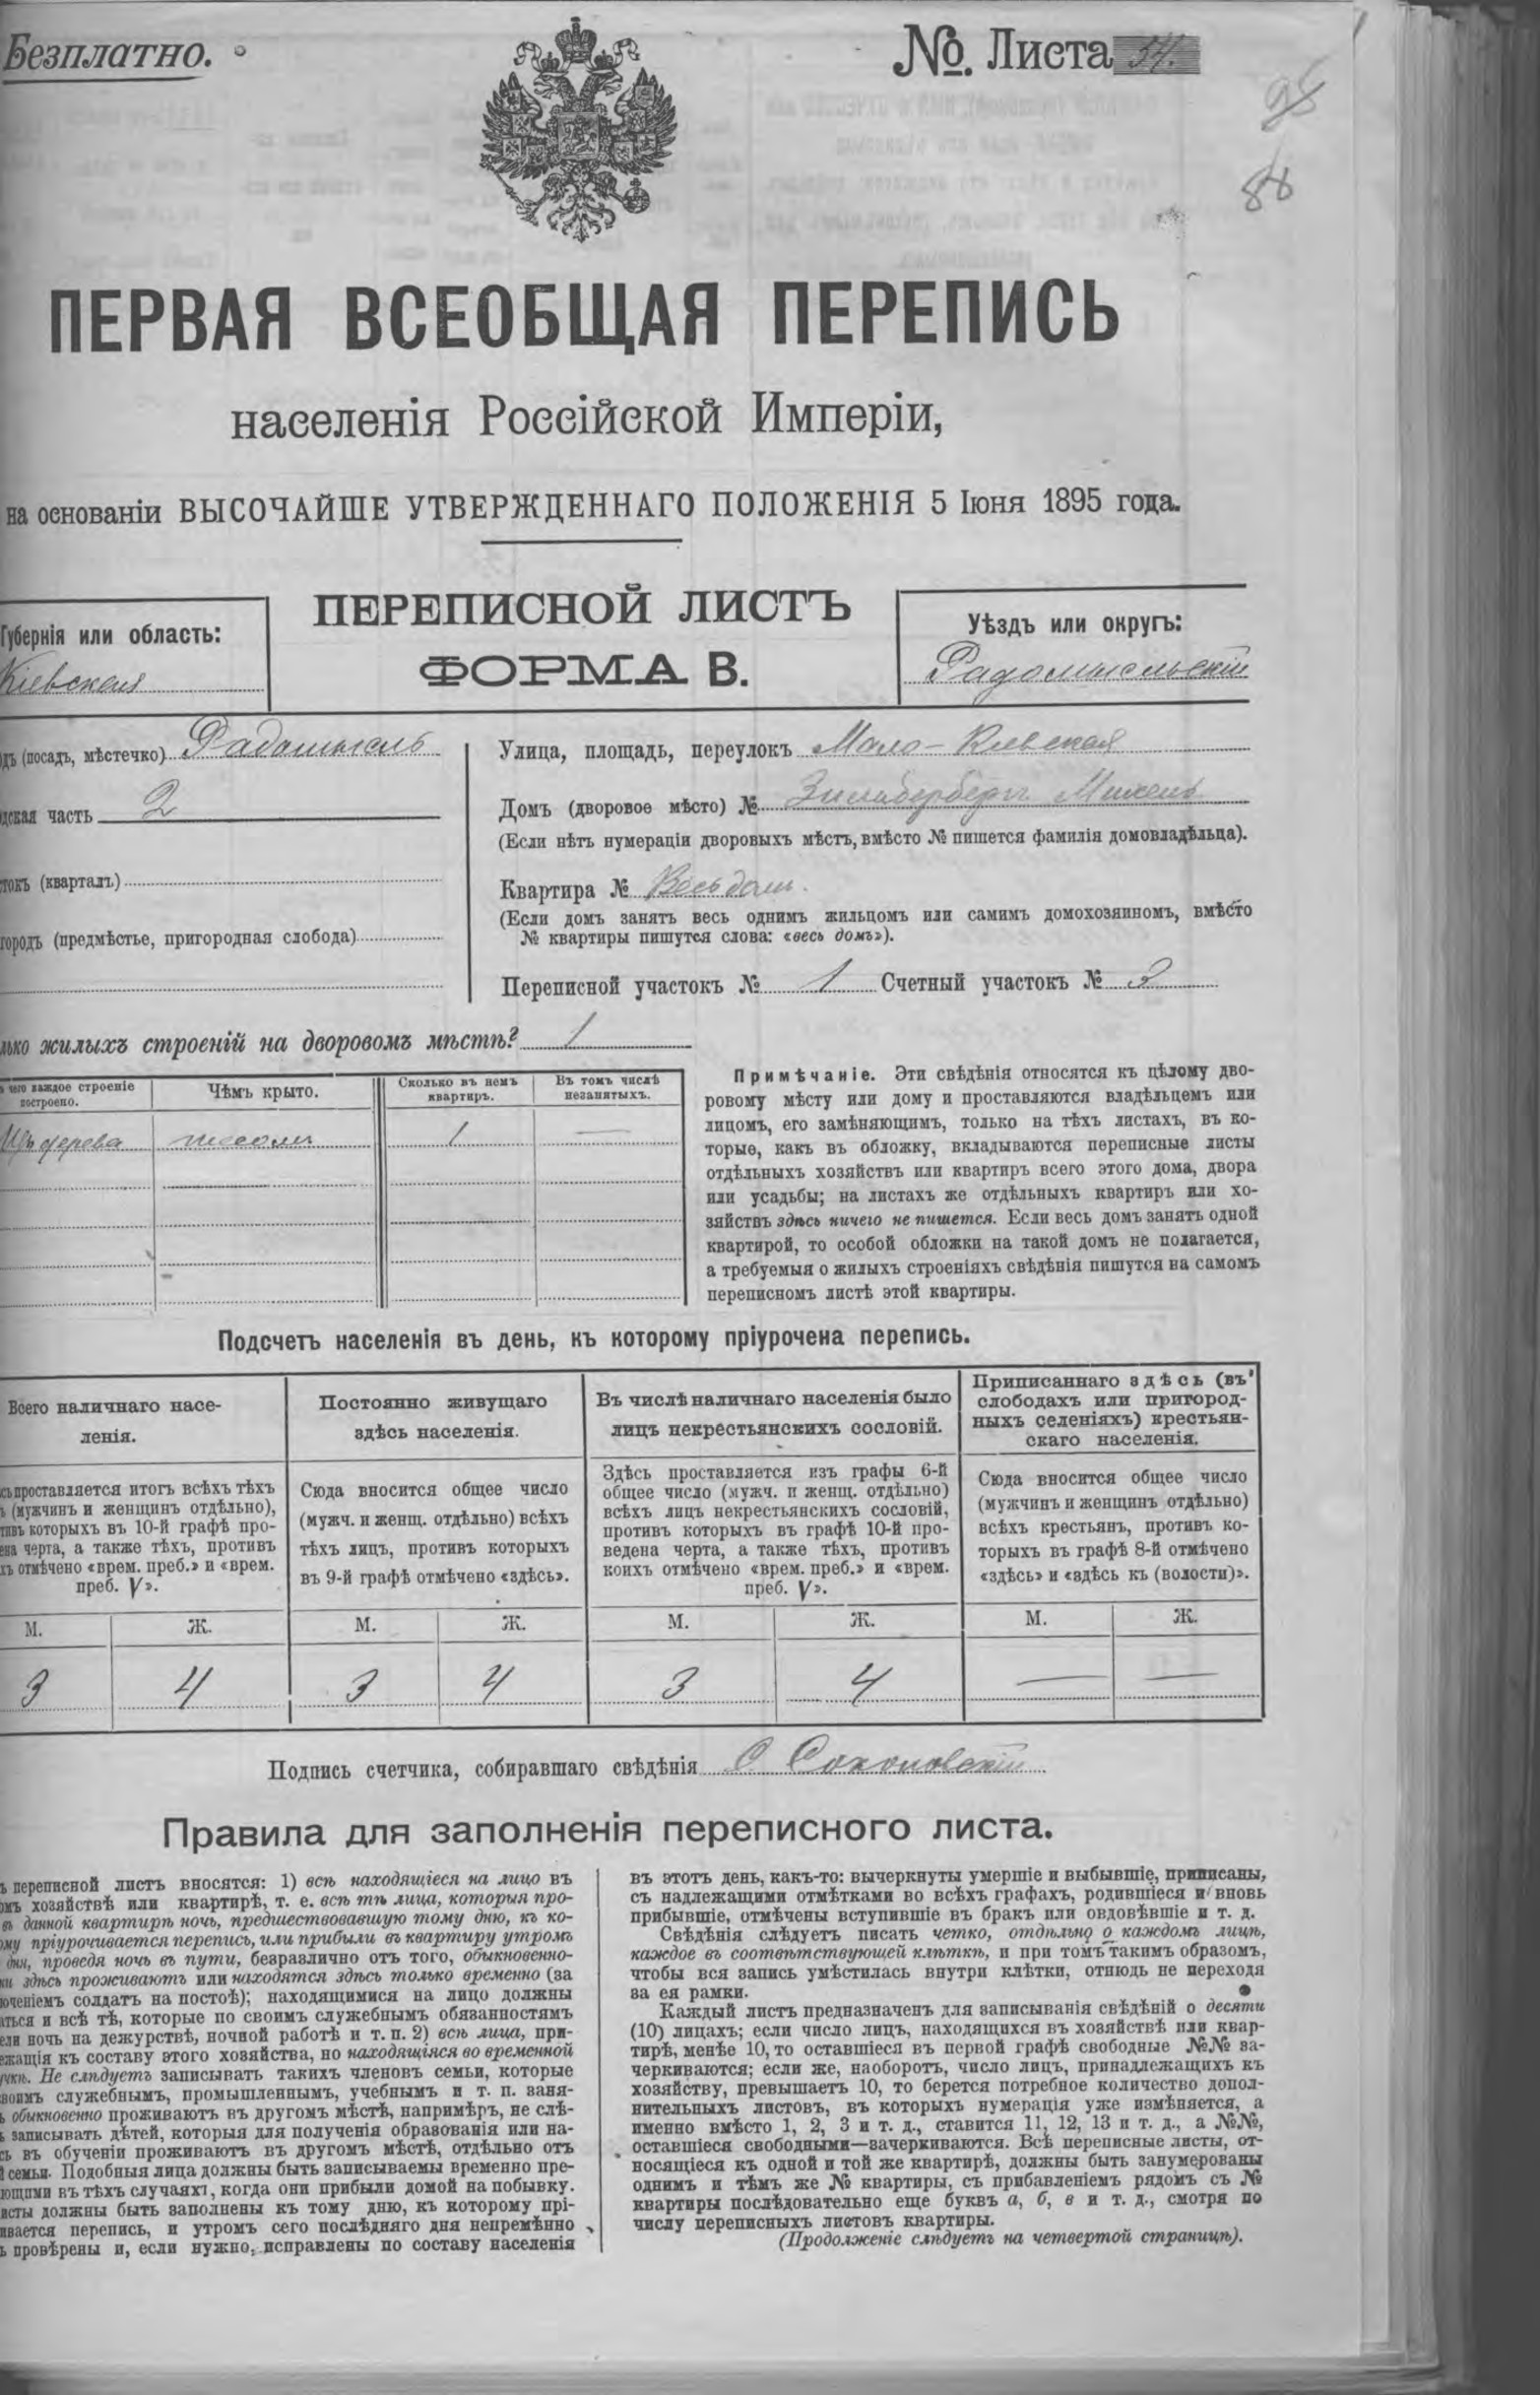 Безплатно.
№. Листа 34.
98
88
ПЕРВАЯ ВСЕОБЩАЯ ПЕРЕПИСЬ
населенія Россійской Имперіи,
на основаніи ВЫСОЧАЙШЕ УТВЕРЖДЕННАГО ПОЛОЖЕНІЯ 5 Іюня 1895 года.
ПЕРЕПИСНОЙ ЛИСТЪ
ФОРМА В.
Губернія или область:
Кіевская
Уѣздъ или округъ:
Радомысльскій
дъ (посадъ, мѣстечко) Радомысль
дская часть 2
токъ (кварталъ)
городъ (предмѣстье, пригородная слобода)
Улица, площадь, переулокъ Мало-Кіевская
Домъ (дворовое мѣсто) № Зильберберг Михель
(Если нѣтъ нумераціи дворовыхъ мѣстъ, вмѣсто № пишется фамилія домовладѣльца).
Квартира № Весь домъ.
(Если домъ занятъ весь однимъ жильцомъ или самимъ домохозяиномъ, вмѣсто
№ квартиры пишутся слова: «весь домъ»).
Переписной участокъ № 1 Счетный участокъ № 2
лько жилыхъ строеній на дворовомъ мѣстѣ? 1
ъ чего каждое строеніе
построено.
Чѣмъ крыто.
Сколько въ немъ
квартиръ.
Въ томъ числѣ
незанятыхъ.
Изъ дерева тесомъ 1 —
Примѣчаніе. Эти свѣдѣнія относятся къ цѣлому дво-
ровому мѣсту или дому и проставляются владѣльцемъ или
лицомъ, его замѣняющимъ, только на тѣхъ листахъ, въ ко-
торые, какъ въ обложку, вкладываются переписные листы
отдѣльныхъ хозяйствъ или квартиръ всего этого дома, двора
или усадьбы; на листахъ же отдѣльныхъ квартиръ или хо-
зяйствъ здѣсь ничего не пишется. Если весь домъ занятъ одной
квартирой, то особой обложки на такой домъ не полагается,
а требуемыя о жилыхъ строеніяхъ свѣдѣнія пишутся на самомъ
переписномъ листѣ этой квартиры.
Подсчетъ населенія въ день, къ которому пріурочена перепись.
Всего наличнаго насе-
ленія.
Постоянно живущаго
здѣсь населенія.
Въ числѣ наличнаго населенія было
лицъ некрестьянскихъ сословій.
Приписаннаго здѣсь (въ
слободахъ или пригород-
ныхъ селеніяхъ) крестьян-
скаго населенія.
сь проставляется итогъ всѣхъ тѣхъ
ъ (мужчинъ и женщинъ отдѣльно),
тивъ которыхъ въ 10-й графѣ про-
ена черта, а также тѣхъ, противъ
хъ отмѣчено «врем. преб.» и «врем.
преб. V».
Сюда вносится общее число
(мужч. и женщ. отдѣльно) всѣхъ
тѣхъ лицъ, противъ которыхъ
въ 9-й графѣ отмѣчено «здѣсь».
Здѣсь проставляется изъ графы 6-й
общее число (мужч. и женщ. отдѣльно)
всѣхъ лицъ некрестьянскихъ сословій,
противъ которыхъ въ графѣ 10-й про-
ведена черта, а также тѣхъ, противъ
коихъ отмѣчено «врем. преб.» и «врем.
преб. V».
Сюда вносится общее число
(мужчинъ и женщинъ отдѣльно)
всѣхъ крестьянъ, противъ ко-
торыхъ въ графѣ 8-й отмѣчено
«здѣсь» и «здѣсь къ (волости)».
М. Ж. М. Ж. М. Ж. М. Ж.
3 4 3 4 3 4 — —
Подпись счетчика, собиравшаго свѣдѣнія С Соколовскій
Правила для заполненія переписного листа.
ъ переписной листъ вносятся: 1) всѣ находящіеся на лицо въ
омъ хозяйствѣ или квартирѣ, т. е. всѣ тѣ лица, которыя про-
въ данной квартирѣ ночь, предшествовавшую тому дню, къ ко-
ому пріурочивается перепись, или прибыли въ квартиру утромъ
дня, проведя ночь въ пути, безразлично отъ того, обыкновенно-
ни здѣсь проживаютъ или находятся здѣсь только временно (за
юченіемъ солдатъ на постоѣ); находящимися на лицо должны
аться и всѣ тѣ, которые по своимъ служебнымъ обязанностямъ
ели ночь на дежурствѣ, ночной работѣ и т. п. 2) всѣ лица, при-
ежащія къ составу этого хозяйства, но находящіяся во временной
учкѣ. Не слѣдуетъ записывать такихъ членовъ семьи, которые
воимъ служебнымъ, промышленнымъ, учебнымъ и т. п. заня-
ъ обыкновенно проживаютъ въ другомъ мѣстѣ, напримѣръ, не слѣ-
ъ записывать дѣтей, которыя для полученія образованія или на-
сь въ обученіи проживаютъ въ другомъ мѣстѣ, отдѣльно отъ
й семьи. Подобныя лица должны быть записываемы временно пре-
ющими въ тѣхъ случаяхъ, когда они прибыли домой на побывку.
исты должны быть заполнены къ тому дню, къ которому прі-
ивается перепись, и утромъ сего послѣдняго дня непремѣнно
ь провѣрены и, если нужно, исправлены по составу населенія
въ этотъ день, какъ-то: вычеркнуты умершіе и выбывшіе, приписаны,
съ надлежащими отмѣтками во всѣхъ графахъ, родившіеся и вновь
прибывшіе, отмѣчены вступившіе въ бракъ или овдовѣвшіе и т. д.
Свѣдѣнія слѣдуетъ писать четко, отдѣльно о каждомъ лицѣ,
каждое въ соотвѣтствующей клѣткѣ, и при томъ такимъ образомъ,
чтобы вся запись умѣстилась внутри клѣтки, отнюдь не переходя
за ея рамки.
Каждый листъ предназначенъ для записыванія свѣдѣній о десяти
(10) лицахъ; если число лицъ, находящихся въ хозяйствѣ или квар-
тирѣ, менѣе 10, то оставшіеся въ первой графѣ свободные №№ за-
черкиваются; если же, наоборотъ, число лицъ, принадлежащихъ къ
хозяйству, превышаетъ 10, то берется потребное количество допол-
нительныхъ листовъ, въ которыхъ нумерація уже измѣняется, а
именно вмѣсто 1, 2, 3 и т. д., ставится 11, 12, 13 и т. д., а №№,
оставшіеся свободными—зачеркиваются. Всѣ переписные листы, от-
носящіеся къ одной и той же квартирѣ, должны быть занумерованы
однимъ и тѣмъ же № квартиры, съ прибавленіемъ рядомъ съ №
квартиры послѣдовательно еще буквъ а, б, в и т. д., смотря по
числу переписныхъ листовъ квартиры.
(Продолженіе слѣдуетъ на четвертой страницѣ).